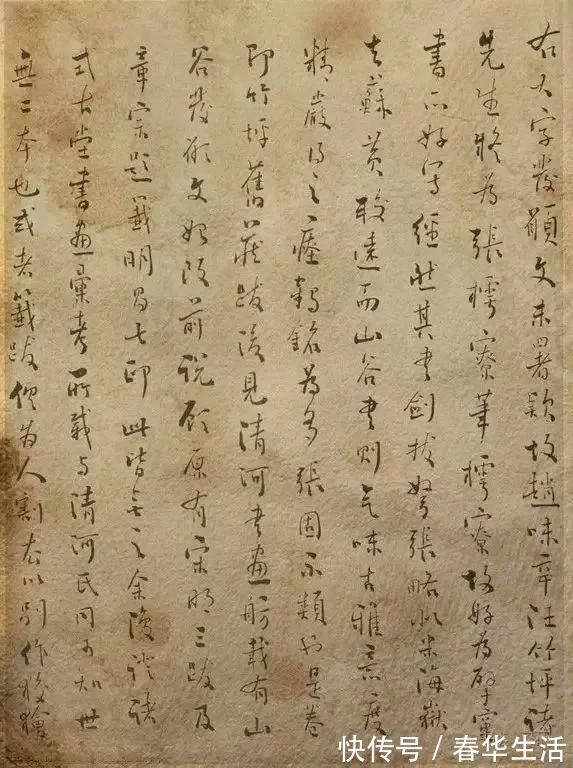 右大字發願文未署款故趙味辛汪竹坪諸
先生疑為張樗寮筆樗寮故好為擘窠
書亦好寫經然其書劍拔弩張略似米海嶽
去蘇黃較遠而山谷書則氣味古雅意度
精嚴得之瘞鶴銘為多張固不類也是卷
即竹坪舊藏跋後見清河書畫舫載有山
谷發願文始改前說顧原有宋明三跋及
章宗題籤明昌七印此皆無之余復證諸
式古堂書畫彙考所載与清河氏同可知世
無二本也或者籤跋為人割去以別作狡獪
快传号 / 春华生活